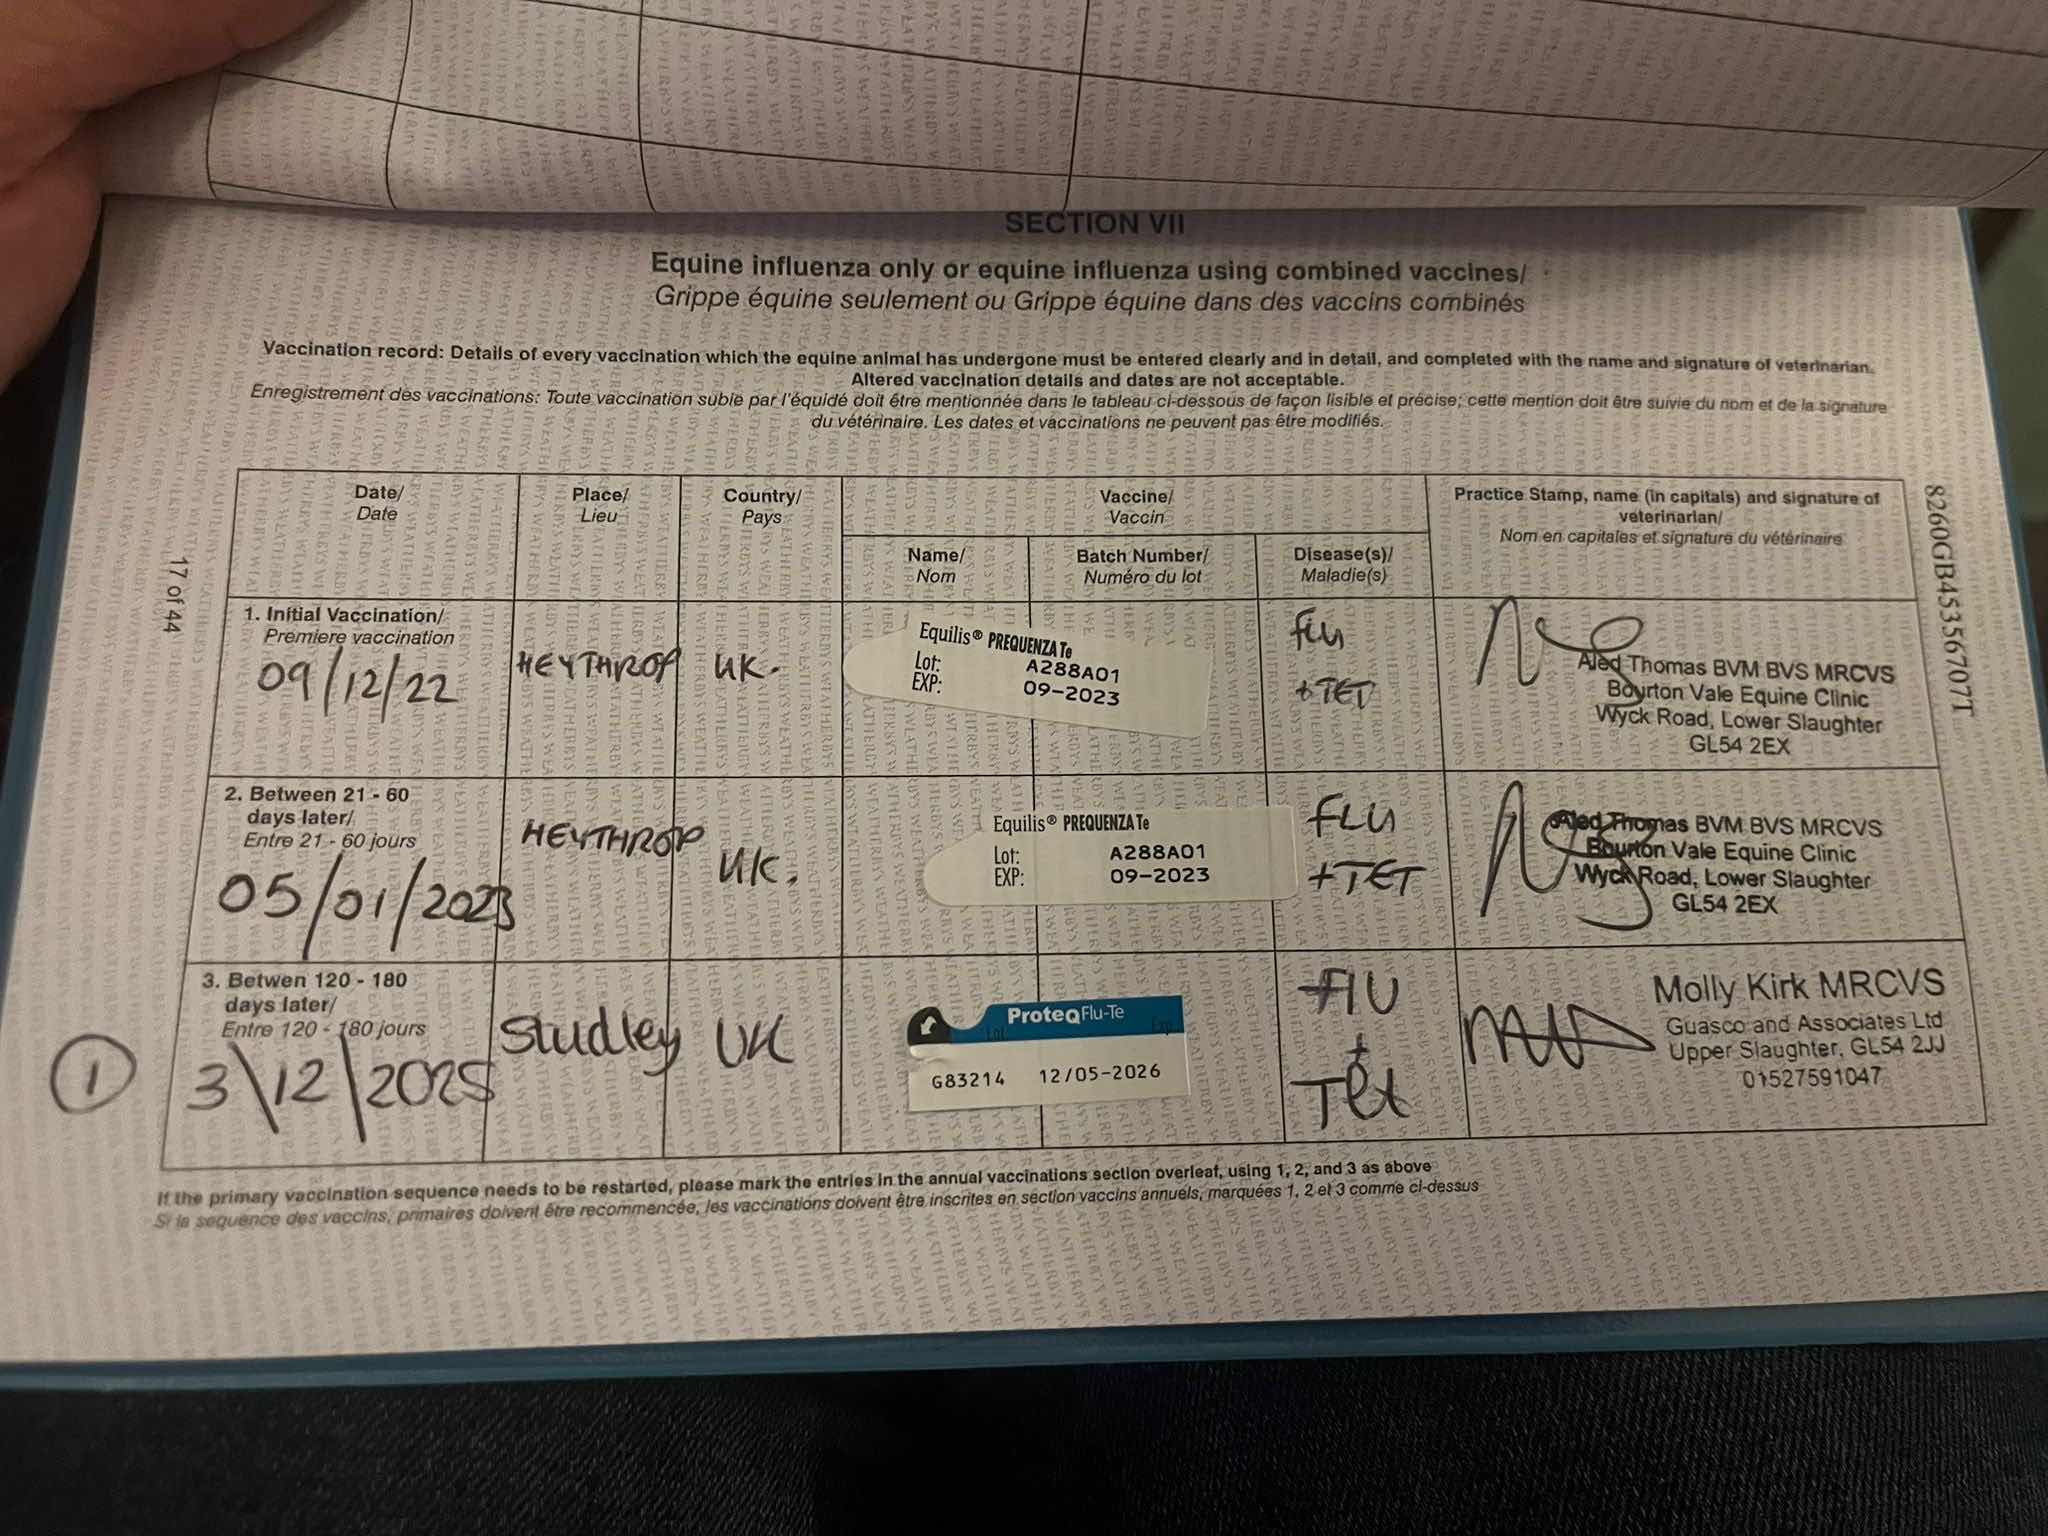 SECTION VII
Equine influenza only or equine influenza using combined vaccines/
Grippe équine seulement ou Grippe équine dans des vaccins combinés
Vaccination record: Details of every vaccination which the equine animal has undergone must be entered clearly and in detail, and completed with the name and signature of veterinarian.
Altered vaccination details and dates are not acceptable.
Enregistrement des vaccinations: Toute vaccination subie par l'équidé doit être mentionnée dans le tableau ci-dessous de façon lisible et précise; cette mention doit être suivie du nom et de la signature
du vétérinaire. Les dates et vaccinations ne peuvent pas être modifiés.
Date/
Date
Place/
Lieu
Country/
Pays
Vaccine/
Vaccin
Name/
Nom
Batch Number/
Numéro du lot
Disease(s)/
Maladie(s)
Practice Stamp, name (in capitals) and signature of
veterinarian/
Nom en capitales et signature du vétérinaire
1. Initial Vaccination/
Premiere vaccination
09/12/22
HEYTHROP
UK.
Equilis® PREQUENZA Te
Lot: A288A01
EXP: 09-2023
FLU
+TET
Aled Thomas BVM BVS MRCVS
Bourton Vale Equine Clinic
Wyck Road, Lower Slaughter
GL54 2EX
2. Between 21 - 60
days later/
Entre 21 - 60 jours
05/01/2023
HEYTHROP
UK.
Equilis® PREQUENZA Te
Lot: A288A01
EXP: 09-2023
FLU
+TET
Aled Thomas BVM BVS MRCVS
Bourton Vale Equine Clinic
Wyck Road, Lower Slaughter
GL54 2EX
3. Betwen 120 - 180
days later/
Entre 120 - 180 jours
1
3\12\2025
Studley
UK
ProteqFlu-Te
Lot Exp
G83214 12/05-2026
Flu
+
Tet
Molly Kirk MRCVS
Guasco and Associates Ltd
Upper Slaughter, GL54 2JJ
01527591047
If the primary vaccination sequence needs to be restarted, please mark the entries in the annual vaccinations section overleaf, using 1, 2, and 3 as above
Si la sequence des vaccins, primaires doivent être recommencée, les vaccinations doivent être inscrites en section vaccins annuels, marquées 1, 2 et 3 comme ci-dessus
17 of 44
8260GB45356707T